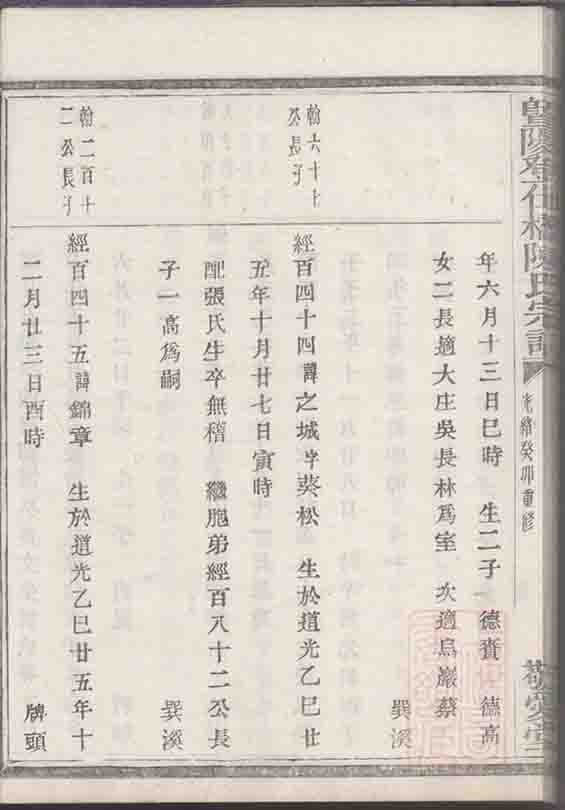 暨陽孝花橋陳氏宗譜 光緒癸卯重修 敬愛堂
年六月十三日巳時 生二子 德賚 德高
女二長適大庄吳長林爲室 次適烏巖蔡
巽溪
翰六十七公長子
經百四十四諱之城字葵松 生於道光乙巳廿
五年十月廿七日寅時
配張氏生卒無稽 繼胞弟經百八十二公長
子一高爲嗣 巽溪
翰二百十二公長子
經百四十五諱錦章 生於道光乙巳廿五年十
二月廿三日酉時 牌頭